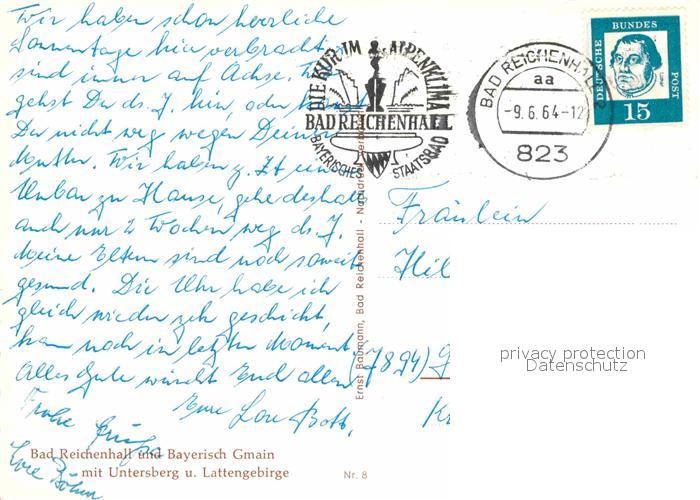 Wir haben schon herrliche
Sonnentage hier verbracht,
sind immer auf Achse.
gehst Du ds. J. hin, oder
Du nicht weg wegen Deiner
Mutter. Wir haben z. Zt. ein
Umbau zu Hause, gehe deshalb
auch nur 2 Wochen weg ds. J.
Meine Eltern sind noch soweit
gesund. Die Uhr habe ich
gleich wieder geschickt,
kam noch im letzten Moment.
Alles Gute wünscht Euch allen
Eure Lore Bott,
Frohe Grüße
Lore Böhm
Bad Reichenhall und Bayerisch Gmain
mit Untersberg u. Lattengebirge
Nr. 8
Ernst Baumann, Bad Reichenhall - Nachdruck verboten
DIE KUR IM ALPENKLIMA
BAD REICHENHALL
BAYERISCHES STAATSBAD
BAD REICHENHALL
aa
-9.6.64-12
823
DEUTSCHE BUNDES POST
15
Fräulein
Hil
(7894)
Kr
privacy protection
Datenschutz